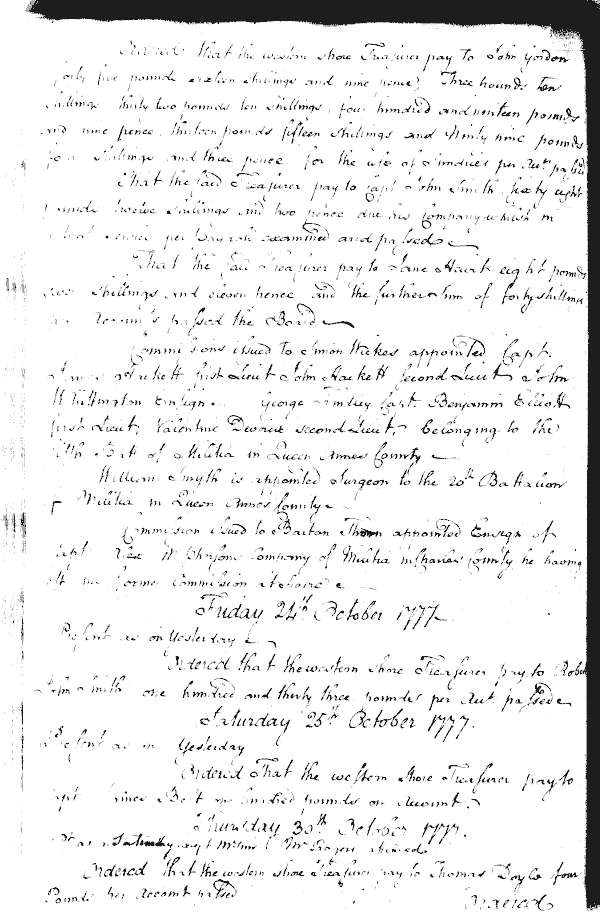 Ordered that the western shore Treasurer pay to John Gordon
forty five pounds sixteen shillings and nine pence, Three hounds ten
shillings thirty two pounds ten shillings, four hundred and nineteen pounds
and nine pence, thirteen pounds fifteen shillings and Ninty nine pounds
four shillings and three pence for the use of Sundries per Acct. passed
That the said Treasurer pay to Capt John Smith Sixty eight
pounds twelve shillings and two pence due his Company whilst in
service per Payroll examined and passed
That the said Treasurer pay to Jane Hewit eight pounds
seven shillings and eleven pence and the further Sum of forty shillings
per Accounts passed the Board
Commissions issued to Simon Wickes appointed Capt.
James Hackett first Lieut John Hackett second Lieut John
Whittington Ensign. George Findley Capt. Benjamin Elliott
first Lieut, Valentine second Lieut, belonging to the
Batt of Militia in Queen Annes County
William Smyth is appointed Surgeon to the 20th Battalion
of Militia in Queen Annes County
Commission issued to Barton appointed Ensign of
Capt. Company of Militia in Charles County he having
former Commission
Friday 24th October 1777
Present as on Yesterday
Ordered that the western shore Treasurer pay to Robert
John Smith one hundred and thirty three pounds per Acct passed
Saturday 25th October 1777.
Present as on Yesterday
Ordered That the western shore Treasurer pay to
Capt James Bolt one hundred pounds on Account.
Thursday 30th October 1777.
as on Saturday except Mr Rogers
Ordered that the western shore Treasurer pay to Thomas Doyle four
Pounds per Account passed
Ordered